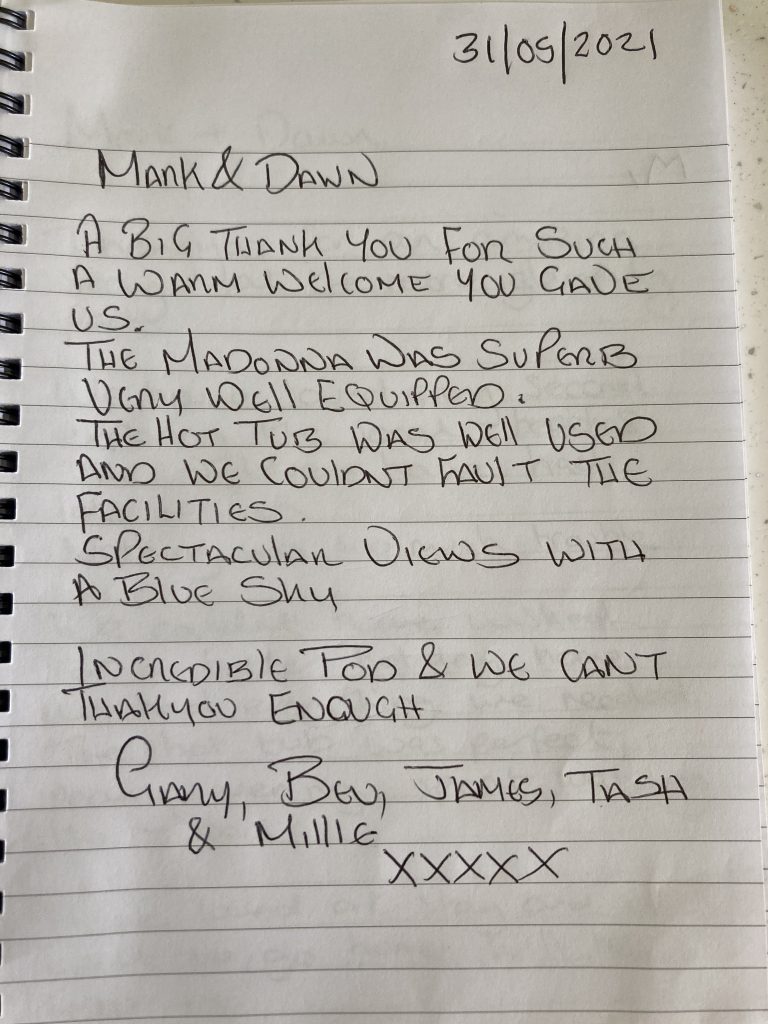 31/05/2021
Mark & Dawn
A BIG THANK YOU FOR SUCH
A WARM WELCOME YOU GAVE
US.
THE MADONNA WAS SUPERB
VERY WELL EQUIPPED.
THE HOT TUB WAS WELL USED
AND WE COULDNT FAULT THE
FACILITIES.
SPECTACULAR VIEWS WITH
A BLUE SKY
INCREDIBLE POD & WE CANT
THAKYOU ENOUGH
GARY, BEV, JAMES, TASH
& MILLIE
XXXXX